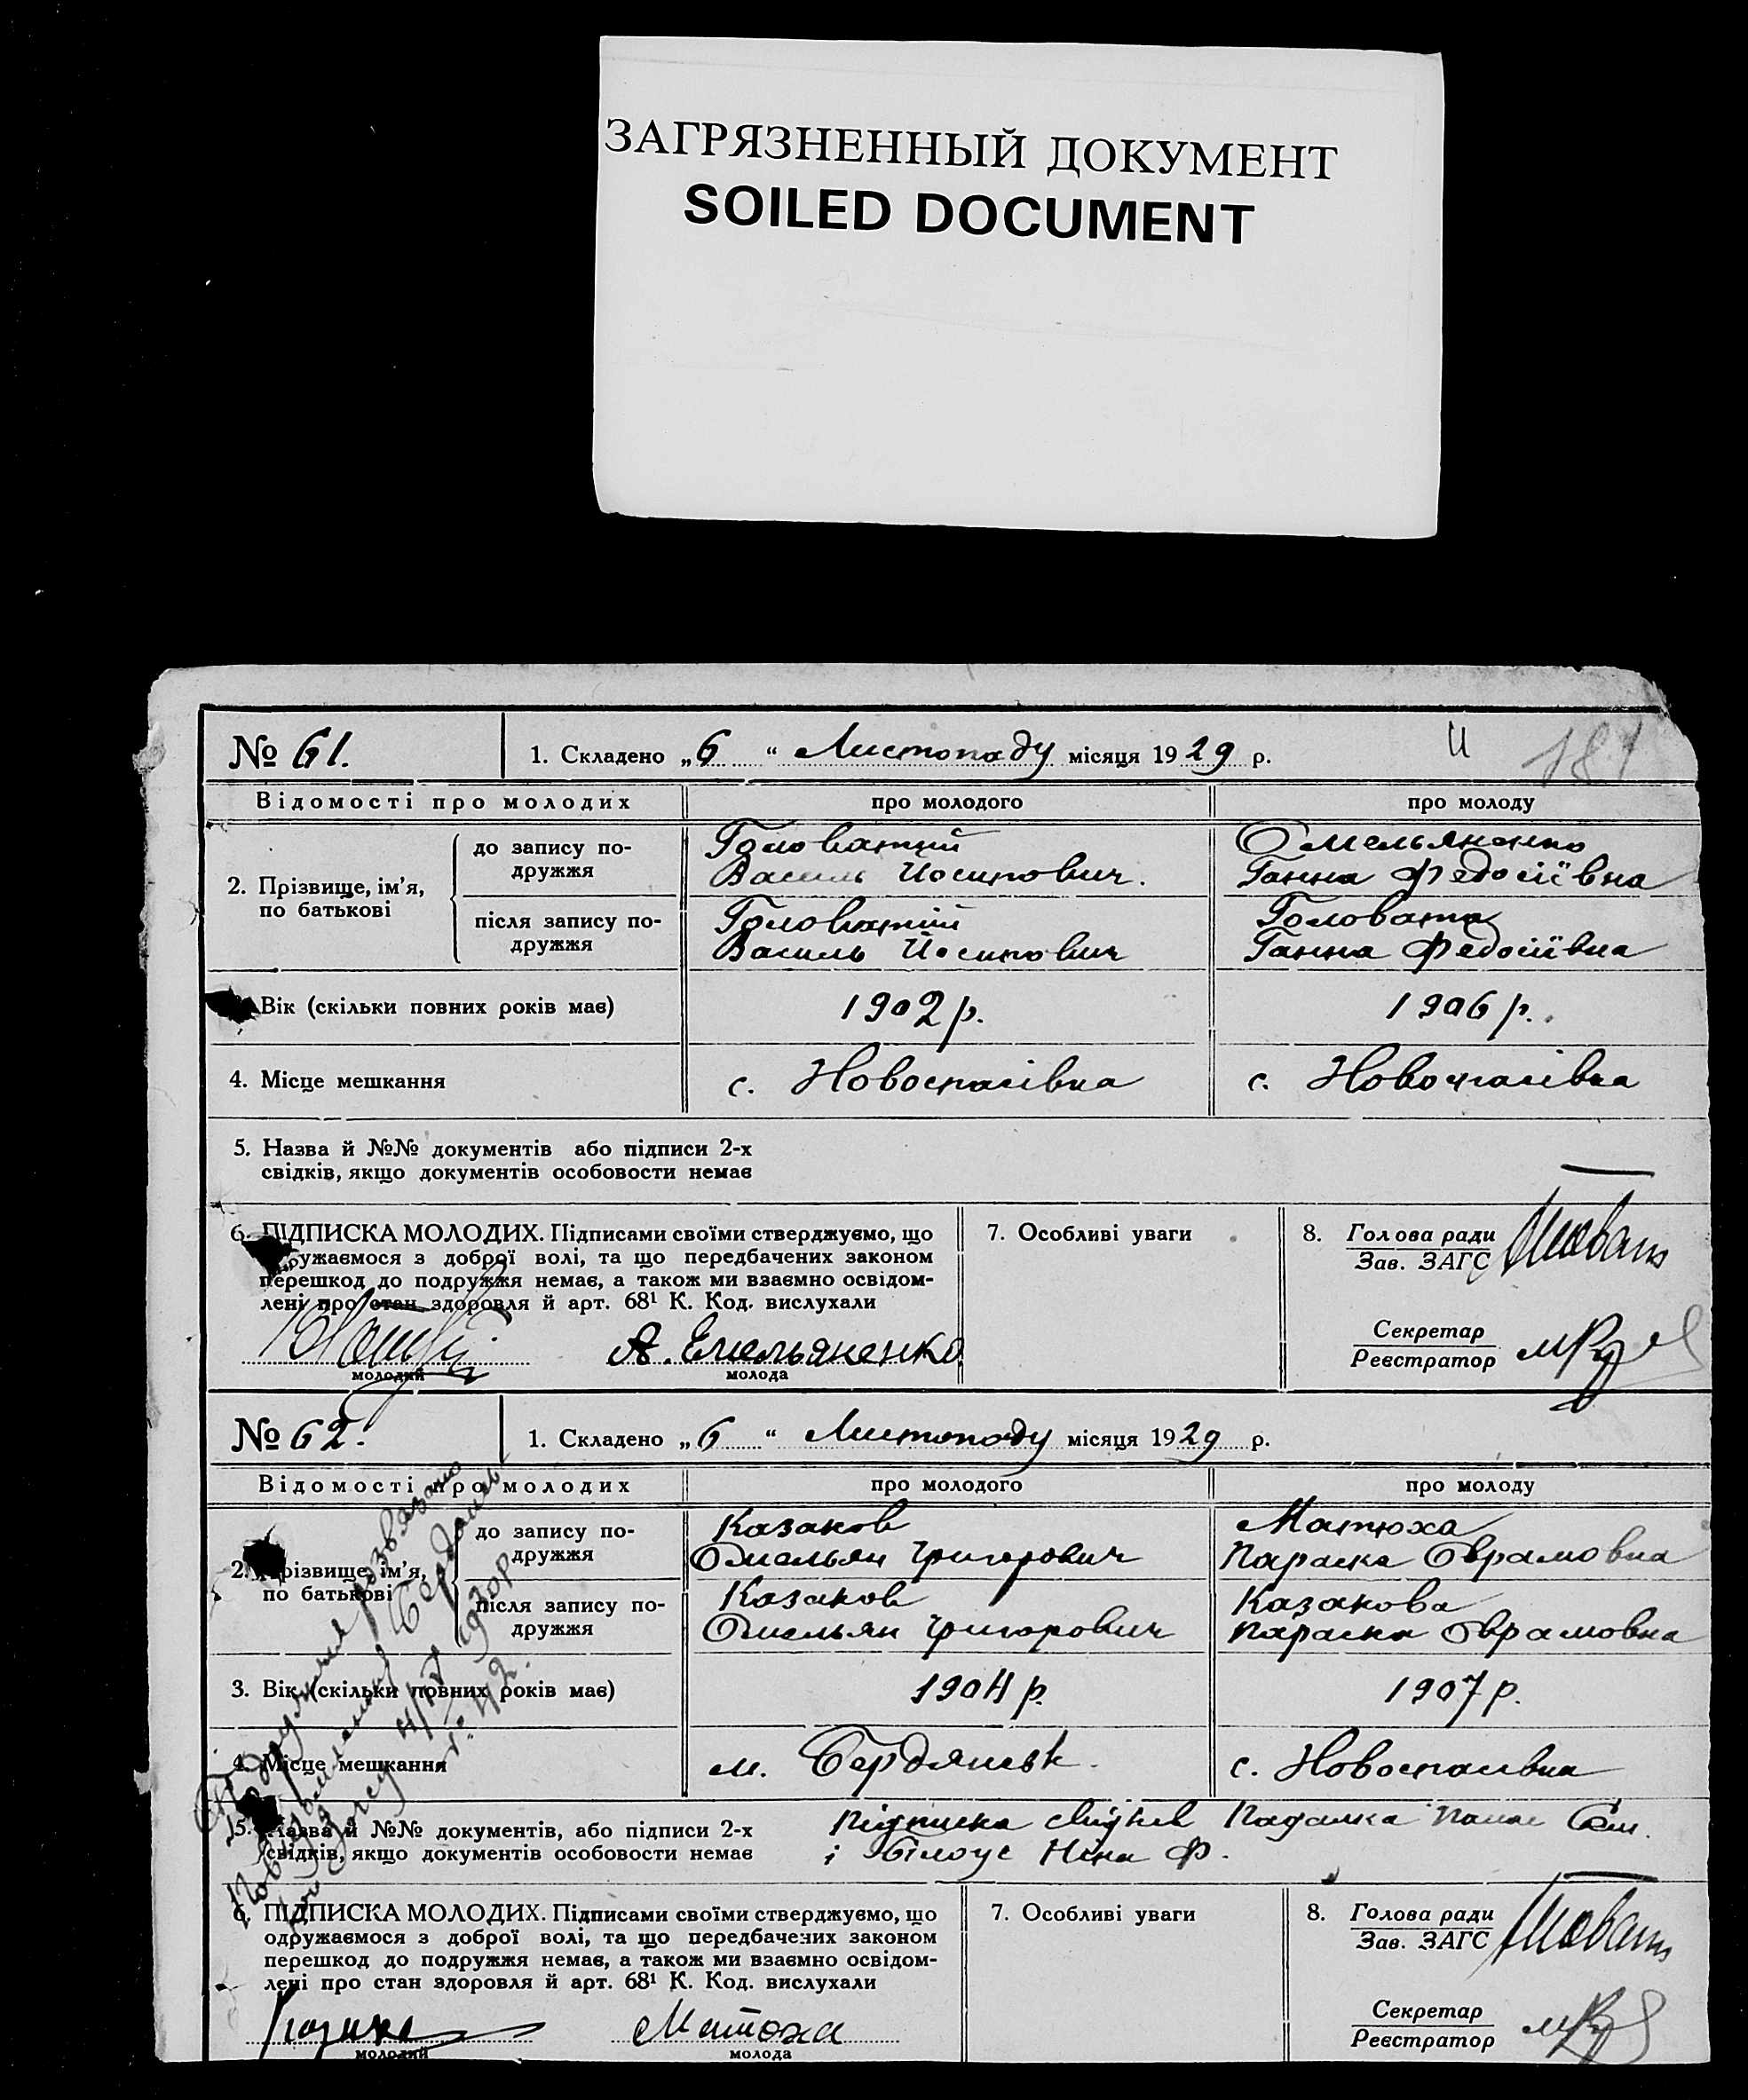 ЗАГРЯЗНЕННЫЙ ДОКУМЕНТ
SOILED DOCUMENT
№ 61.
1. Складено „6“ Листопаду місяця 1929 р.
И
181
Відомості про молодих
про молодого
про молоду
2. Прізвище, ім'я,
по батькові
до запису по-
дружжя
Головатий
Василь Йосипович.
Омельяненко
Ганна Федосіївна
після запису по-
дружжя
Головатий
Василь Йосипович
Головата
Ганна Федосіївна
Вік (скільки повних років має)
1902 р.
1906 р.
4. Місце мешкання
с. Новоспасівка
с. Новоспасівка
5. Назва й №№ документів або підписи 2-х
свідків, якщо документів особовости немає
6. ПІДПИСКА МОЛОДИХ. Підписами своїми стверджуємо, що
одружаємося з доброї волі, та що передбачених законом
перешкод до подружжя немає, а також ми взаємно освідом-
лені про стан здоровля й арт. 68¹ К. Код. вислухали
7. Особливі уваги
8. Голова ради
Зав. ЗАГС
Секретар
Реєстратор
А. Емельяненко
молодий
молода
№ 62.
1. Складено „6“ Листопаду місяця 1929 р.
Відомості про молодих
про молодого
про молоду
2. Прізвище, ім'я,
по батькові
до запису по-
дружжя
Казаков
Омельян Григорович
Матюха
Параска Оврамовна
після запису по-
дружжя
Казаков
Омельян Григорович
Казакова
Параска Оврамовна
3. Вік (скільки повних років має)
1904 р.
1907 р.
4. Місце мешкання
м. Бердянськ.
с. Новоспасівка
5. Назва й №№ документів, або підписи 2-х
свідків, якщо документів особовости немає
Підписка свідків Падалка Панас
і Білоус Ніна Ф.
Подружжя розвязано
4/IV 1930 р
№ 42.
6. ПІДПИСКА МОЛОДИХ. Підписами своїми стверджуємо, що
одружаємося з доброї волі, та що передбачених законом
перешкод до подружжя немає, а також ми взаємно освідом-
лені про стан здоровля й арт. 68¹ К. Код. вислухали
7. Особливі уваги
8. Голова ради
Зав. ЗАГС
Секретар
Реєстратор
Матюха
молодий
молода